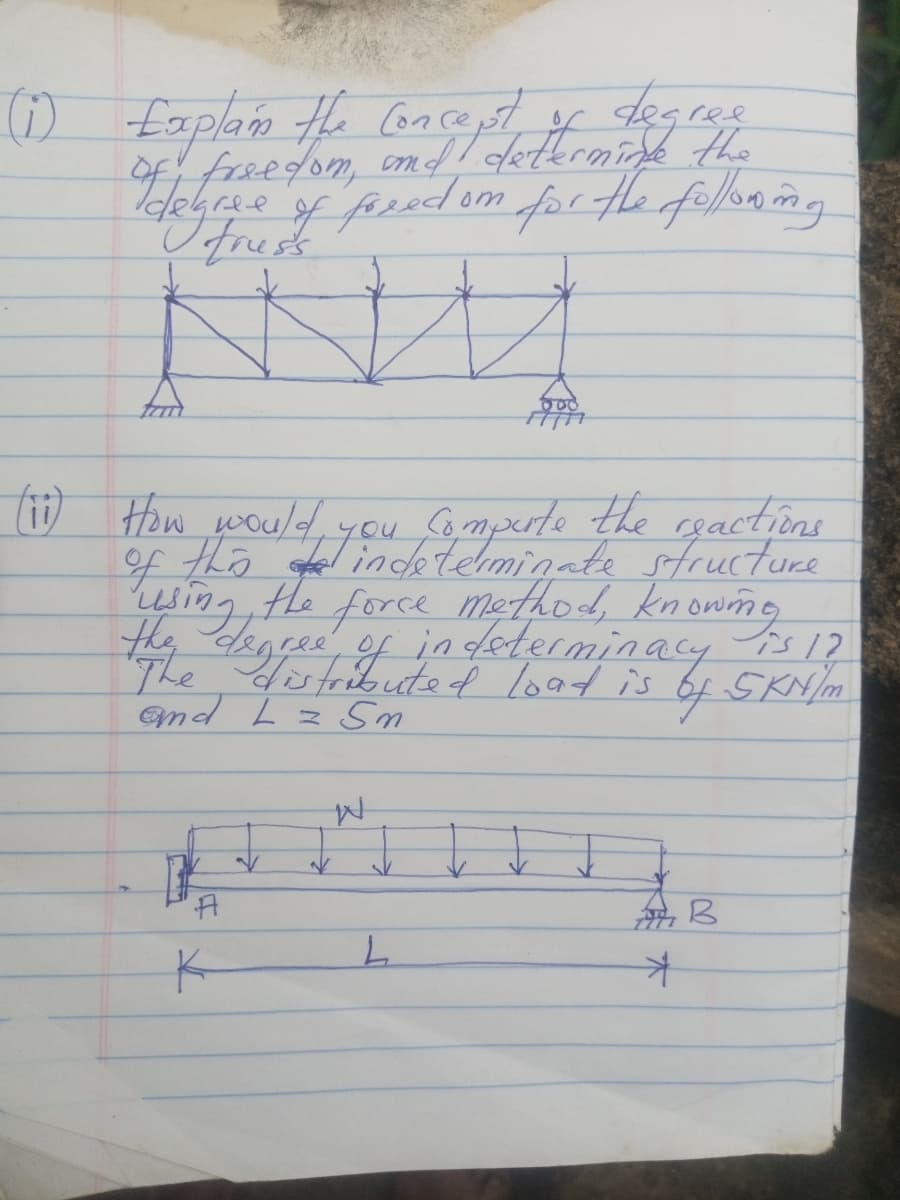 (i) Explain the Concept of degree
of freedom, and determine the
degree of freedom for the following
truss
(ii) How would you Compute the reactions
of this indeterminate structure
using the force method, knowing
the degree of indeterminacy is 1?
The distributed load is of 5KN/m
and L = 5m
W
A
B
L